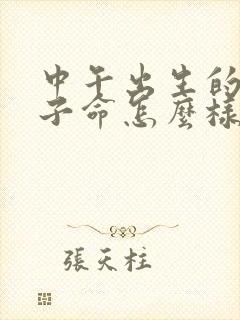 中午出生的
子命怎麼樣
張天柱